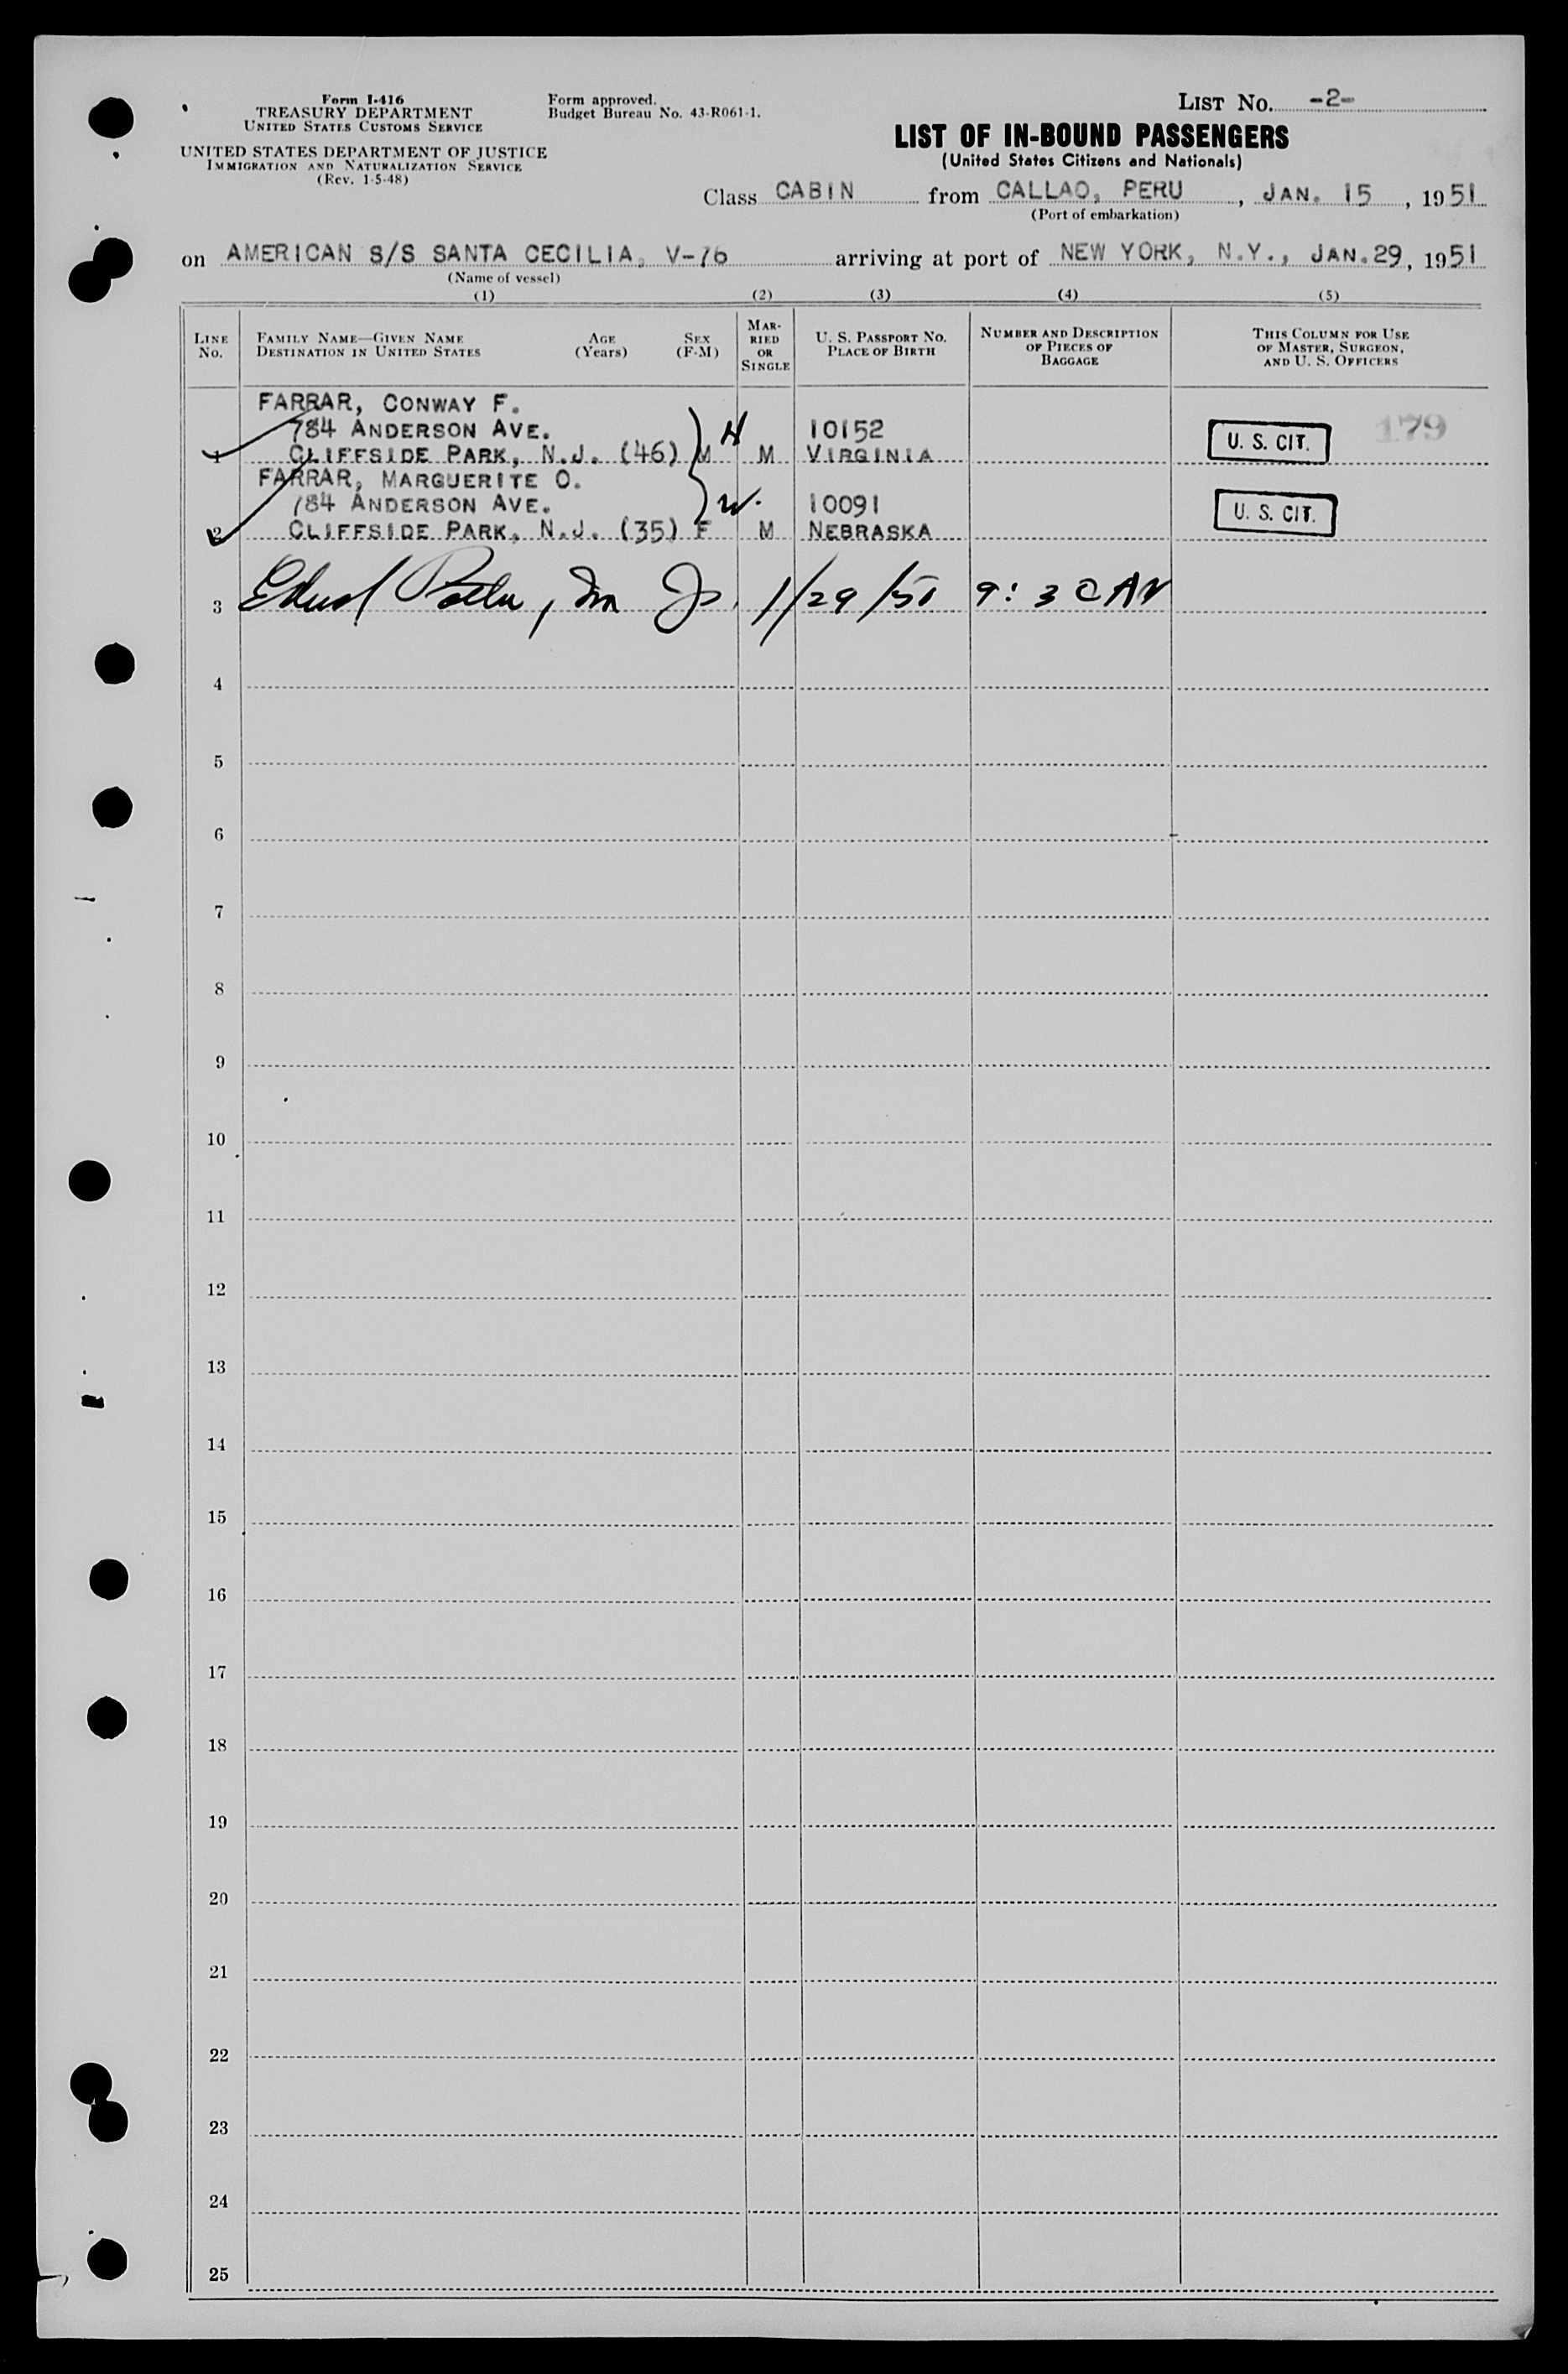 Form I-416
TREASURY DEPARTMENT
UNITED STATES CUSTOMS SERVICE
UNITED STATES DEPARTMENT OF JUSTICE
IMMIGRATION AND NATURALIZATION SERVICE
(Rev. 1-5-48)
Form approved.
Budget Bureau No. 43-R061-1.
LIST No. -2-
LIST OF IN-BOUND PASSENGERS
(United States Citizens and Nationals)
Class CABIN from CALLAO, PERU, JAN. 15, 1951
(Port of embarkation)
on AMERICAN S/S SANTA CECILIA, V-76 arriving at port of NEW YORK, N.Y., JAN. 29, 1951
(Name of vessel)
(1) (2) (3) (4) (5)
LINE No.
FAMILY NAME—GIVEN NAME
DESTINATION IN UNITED STATES
AGE (Years)
SEX (F-M)
MARRIED OR SINGLE
U. S. PASSPORT NO.
PLACE OF BIRTH
NUMBER AND DESCRIPTION OF PIECES OF BAGGAGE
THIS COLUMN FOR USE OF MASTER, SURGEON, AND U. S. OFFICERS
FARRAR, CONWAY F.
784 ANDERSON AVE. H 10152 U. S. CIT. 179
1 CLIFFSIDE PARK, N.J. (46) M M VIRGINIA
FARRAR, MARGUERITE O.
784 ANDERSON AVE. W. 10091 U. S. CIT.
2 CLIFFSIDE PARK, N.J. (35) F M NEBRASKA
3 1/29/51 9:30 AM
4
5
6
7
8
9
10
11
12
13
14
15
16
17
18
19
20
21
22
23
24
25